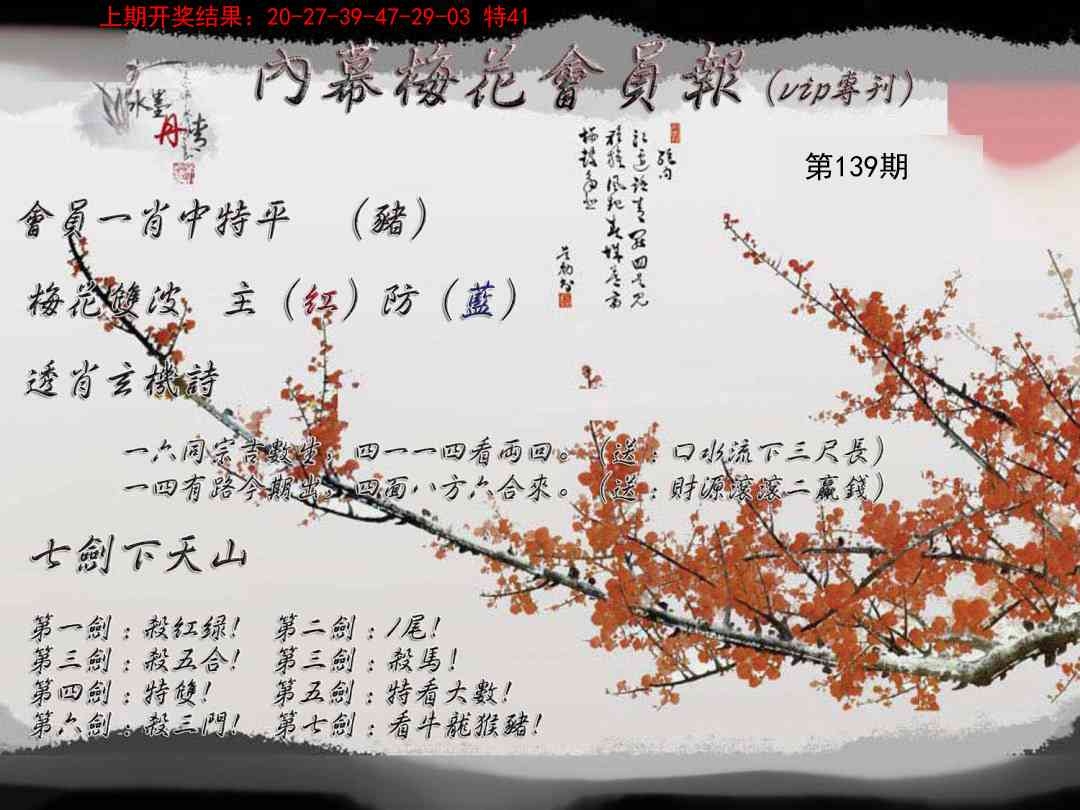 上期开奖结果：20-27-39-47-29-03 特41
內幕梅花會員報（vip專刊）
水墨
丹青
第139期
會員一肖中特平 （豬）
梅花雙波 主（红）防（藍）
透肖玄機詩
一六同宗吉數生，四一一四看两回。（送：口水流下三尺長）
一四有路今期出，四面八方六合來。（送：財源滾滾二贏錢）
七劍下天山
第一劍：殺红绿！ 第二劍：1尾！
第三劍：殺五合！ 第三劍：殺馬！
第四劍：特雙！ 第五劍：特看大數！
第六劍：殺三門！ 第七劍：看牛龍猴豬！